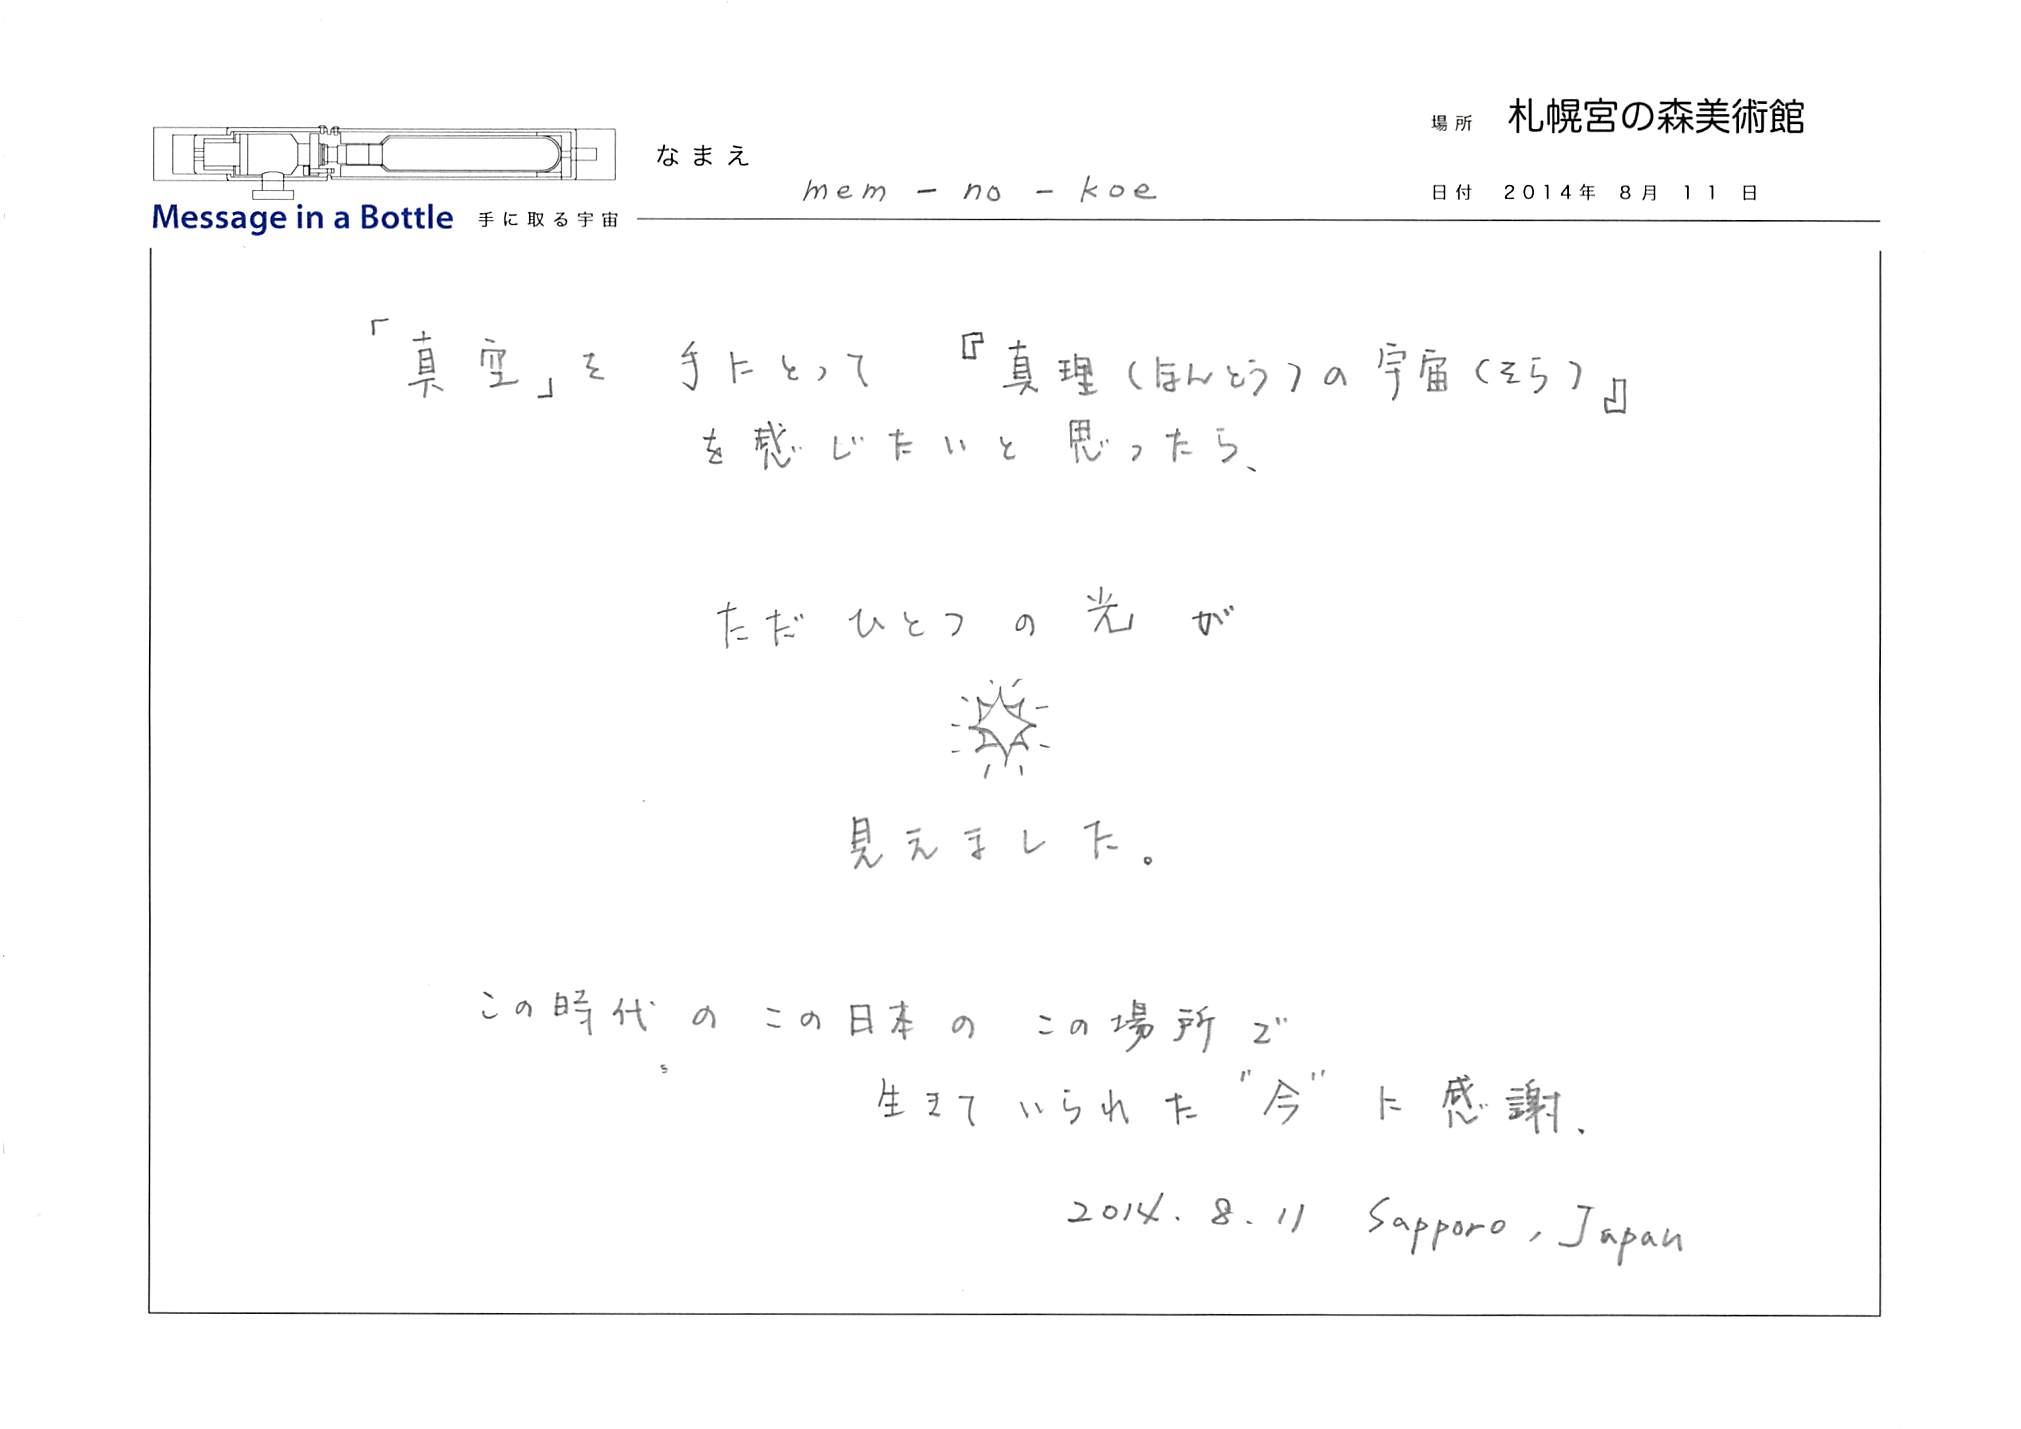 場所 札幌宮の森美術館
なまえ mem-no-koe
日付 2014年 8月 11日
Message in a Bottle 手に取る宇宙
「真空」を 手にとって 『真理(ほんとう)の宇宙(そら)』
を感じたいと 思ったら、
ただ ひとつ の 光 が
見えました。
この時代 の この日本 の この場所で
生きて いられた "今" に 感謝.
2014. 8. 11 Sapporo, Japan